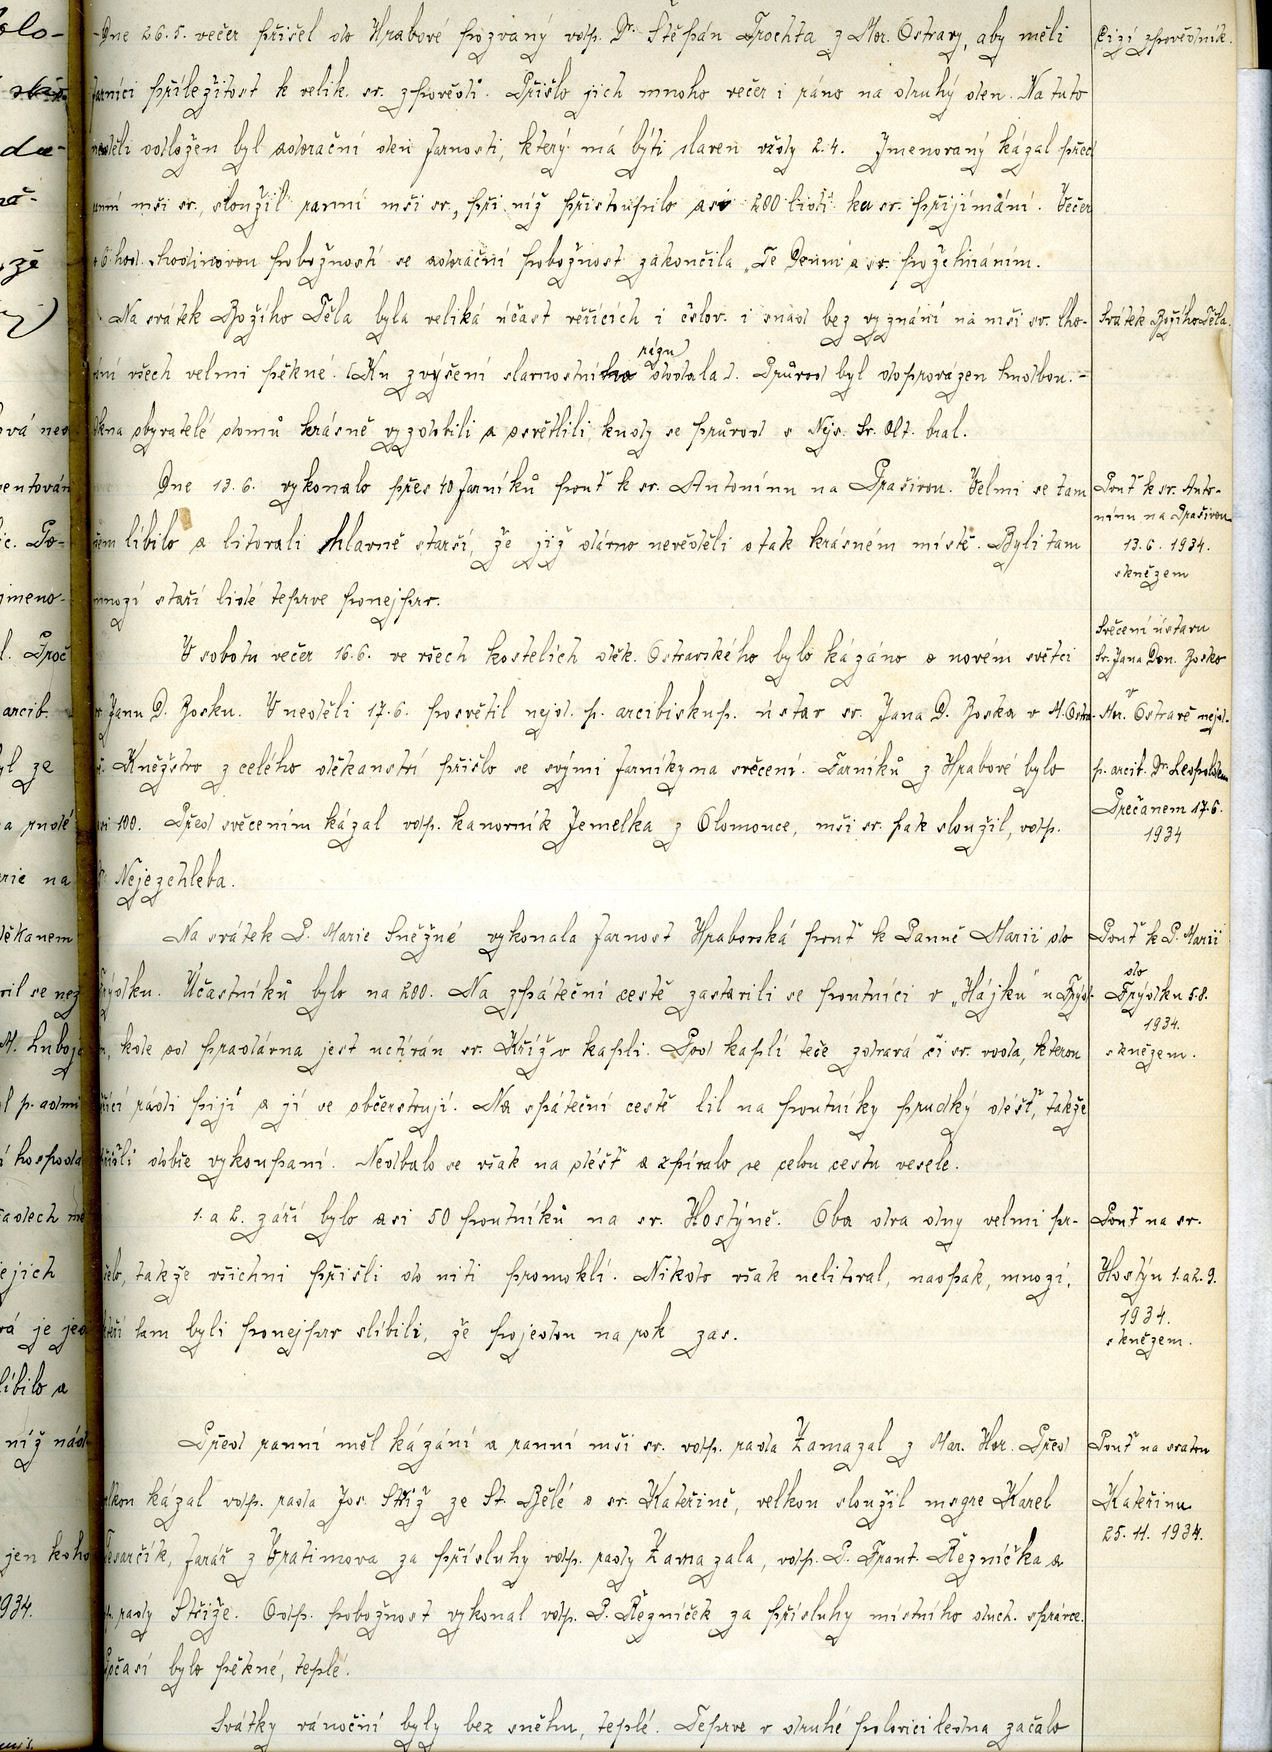 Dne 26.5. večer přišel do Hrabové pozvaný vdp. Dr. Štěpán Trochta z Mor. Ostravy, aby měli
farníci příležitost k velik. sv. zpovědi. Přišlo jich mnoho večer i ráno na druhý den. Na tuto
neděli odložen byl adorační den farnosti, který má býti slaven vždy 2.4. Jmenovaný kázal před
ranní mši sv., sloužil ranní mši sv., při níž přistoupilo asi 200 lidí ku sv. přijímání. Večer
v 6 hod. hodinovou pobožností se adorační pobožnost zakončila „Te Deum a sv. požehnáním.
Na svátek Božího Těla byla veliká účast věřících i čslov. i snad bez vyznání na mši sv. Cho-
vání všech velmi pěkné. (Ku zvýšení slavnostního
rázu)
dodala). Průvod byl doprovázen hudbou. -
Okna obyvatelé domů krásně vyzdobili a osvětlili, kudy se průvod s Nejs. Sv. Olt. bral.
Dne 13.6. vykonalo přes 40 farníků pouť k sv. Antonínu na Prašivou. Velmi se tam
všem líbilo a litovali hlavně starší, že již dávno nevěděli o tak krásném místě. Byli tam
mnozí staří lidé teprve ponejprv.
V sobotu večer 16.6. ve všech kostelích děk. Ostravského bylo kázáno o novém světci
sv. Janu D. Bosku. V neděli 17.6. posvětil nejd. p. arcibiskup. ústav sv. Jana D. Boska v M. Ostra-
vě. Kněžstvo z celého děkanství přišlo se svými farníky na svěcení. Farníků z Hrabové bylo
asi 100. Před svěcením kázal vdp. kanovník Jemelka z Olomouce, mši sv. pak sloužil, vdp.
Dr. Nejezchleba.
Na svátek P. Marie Sněžné vykonala farnost Hrabovská pouť k Panně Marii do
Frýdku. Účastníků bylo na 200. Na zpáteční cestě zastavili se poutníci v „Hájku“ u Frýd-
ku, kde od pradávna jest uctíván sv. Kříž v kapli. Pod kaplí teče zdravá či sv. voda, kterou
věřící rádi pijí a jí se občerstvují. Na zpáteční cestě lil na poutníky prudký déšť, takže
přišli dobře vykoupaní. Nedbalo se však na déšť a zpívalo se celou cestu vesele.
1. a 2. září bylo asi 50 poutníků na sv. Hostýně. Oba dva dny velmi pr-
šelo, takže všichni přišli do niti promoklí. Nikdo však nelitoval, naopak, mnozí,
kteří tam byli ponejprv slíbili, že pojedou na rok zas.
Před ranní měl kázání a ranní mši sv. vdp. rada Zamazal z Mar. Hor. Před
velkou kázal vdp. rada Jos. Stříž ze St. Bělé o sv. Kateřině, velkou sloužil msgre Karel
Tesarčík, farář z Vratimova za přísluhy vdp. rady Zamazala, vdp. P. Frant. Řezníčka a
vdp. rady Stříže. Odp. pobožnost vykonal vdp. P. Řezníček za přísluhy místního duch. správce.
Počasí bylo pěkné, teplé.
Svátky vánoční byly bez sněhu, teplé. Teprve v druhé polovici ledna začalo
Cizí zpovědník.
Svátek Božího Těla.
Pouť k sv. Anto-
nínu na Prašivou
13.6. 1934.
s knězem
Svěcení ústavu
Sv. Jana Don. Boska
v
Mor. Ostravě nejd.
p. arcib. Dr. Leopoldem
Prečanem 17.6.
1934
Pouť k P. Marii
do
Frýdku 5.8.
1934.
s knězem.
Pouť na sv.
Hostýn 1. a 2. 9.
1934.
s knězem.
Pouť na svatou
Kateřinu
25. 11. 1934.